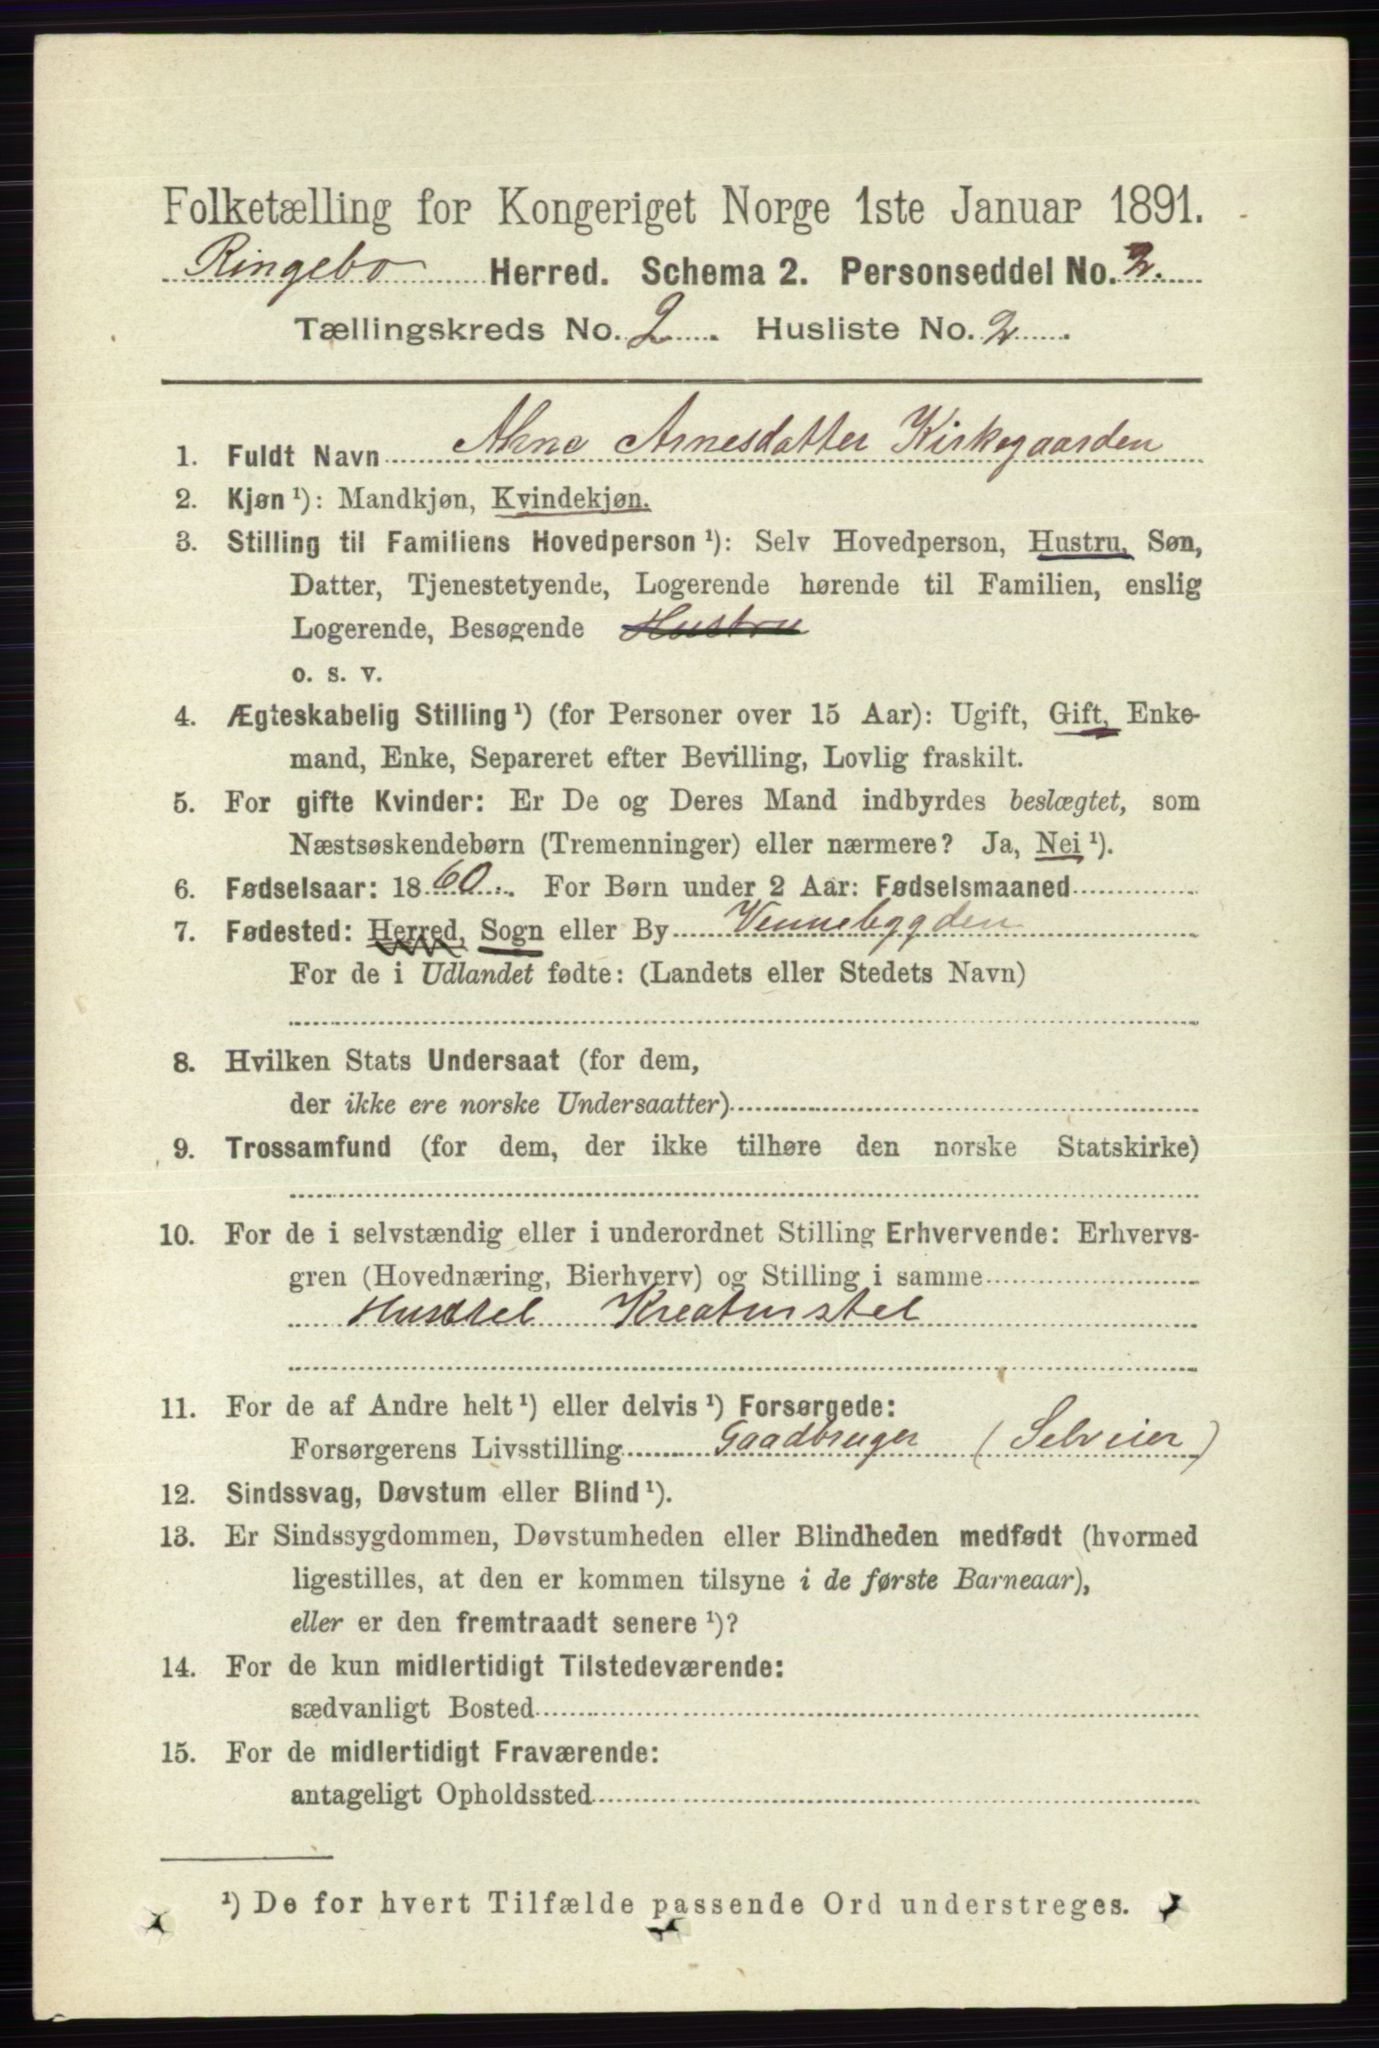 Folketælling for Kongeriget Norge 1ste Januar 1891.
Ringebo Herred. Schema 2. Personseddel No. 2.
Tællingskreds No. 2. Husliste No. 2.
1. Fuldt Navn Arnesdatter Kirkegaarden
2. Kjøn ¹): Mandkjøn, Kvindekjøn.
3. Stilling til Familiens Hovedperson ¹): Selv Hovedperson, Hustru, Søn,
Datter, Tjenestetyende, Logerende hørende til Familien, enslig
Logerende, Besøgende Hustru
o. s. v.
4. Ægteskabelig Stilling ¹) (for Personer over 15 Aar): Ugift, Gift, Enke-
mand, Enke, Separeret efter Bevilling, Lovlig fraskilt.
5. For gifte Kvinder: Er De og Deres Mand indbyrdes beslægtet, som
Næstsøskendebørn (Tremenninger) eller nærmere? Ja, Nei ¹).
6. Fødselsaar: 1860. For Børn under 2 Aar: Fødselsmaaned
7. Fødested: Herred, Sogn eller By Vennebygden
For de i Udlandet fødte: (Landets eller Stedets Navn)
8. Hvilken Stats Undersaat (for dem,
der ikke ere norske Undersaatter)
9. Trossamfund (for dem, der ikke tilhøre den norske Statskirke)
10. For de i selvstændig eller i underordnet Stilling Erhvervende: Erhvervs-
gren (Hovednæring, Bierhverv) og Stilling i samme
Husstel Kreaturstel
11. For de af Andre helt ¹) eller delvis ¹) Forsørgede:
Forsørgerens Livsstilling Gaadbruger (Selveier)
12. Sindssvag, Døvstum eller Blind ¹).
13. Er Sindssygdommen, Døvstumheden eller Blindheden medfødt (hvormed
ligestilles, at den er kommen tilsyne i de første Barneaar),
eller er den fremtraadt senere ¹)?
14. For de kun midlertidigt Tilstedeværende:
sædvanligt Bosted
15. For de midlertidigt Fraværende:
antageligt Opholdssted
¹) De for hvert Tilfælde passende Ord understreges.